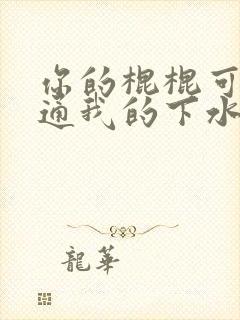 你的棍棍可
通我的下水
龍華